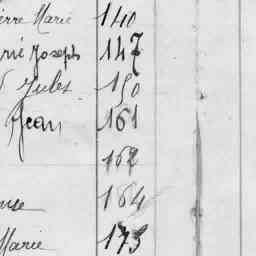 erre Marie 140
rie Joseph 147
Jules 150
Jean 161
162
164
Marie 173